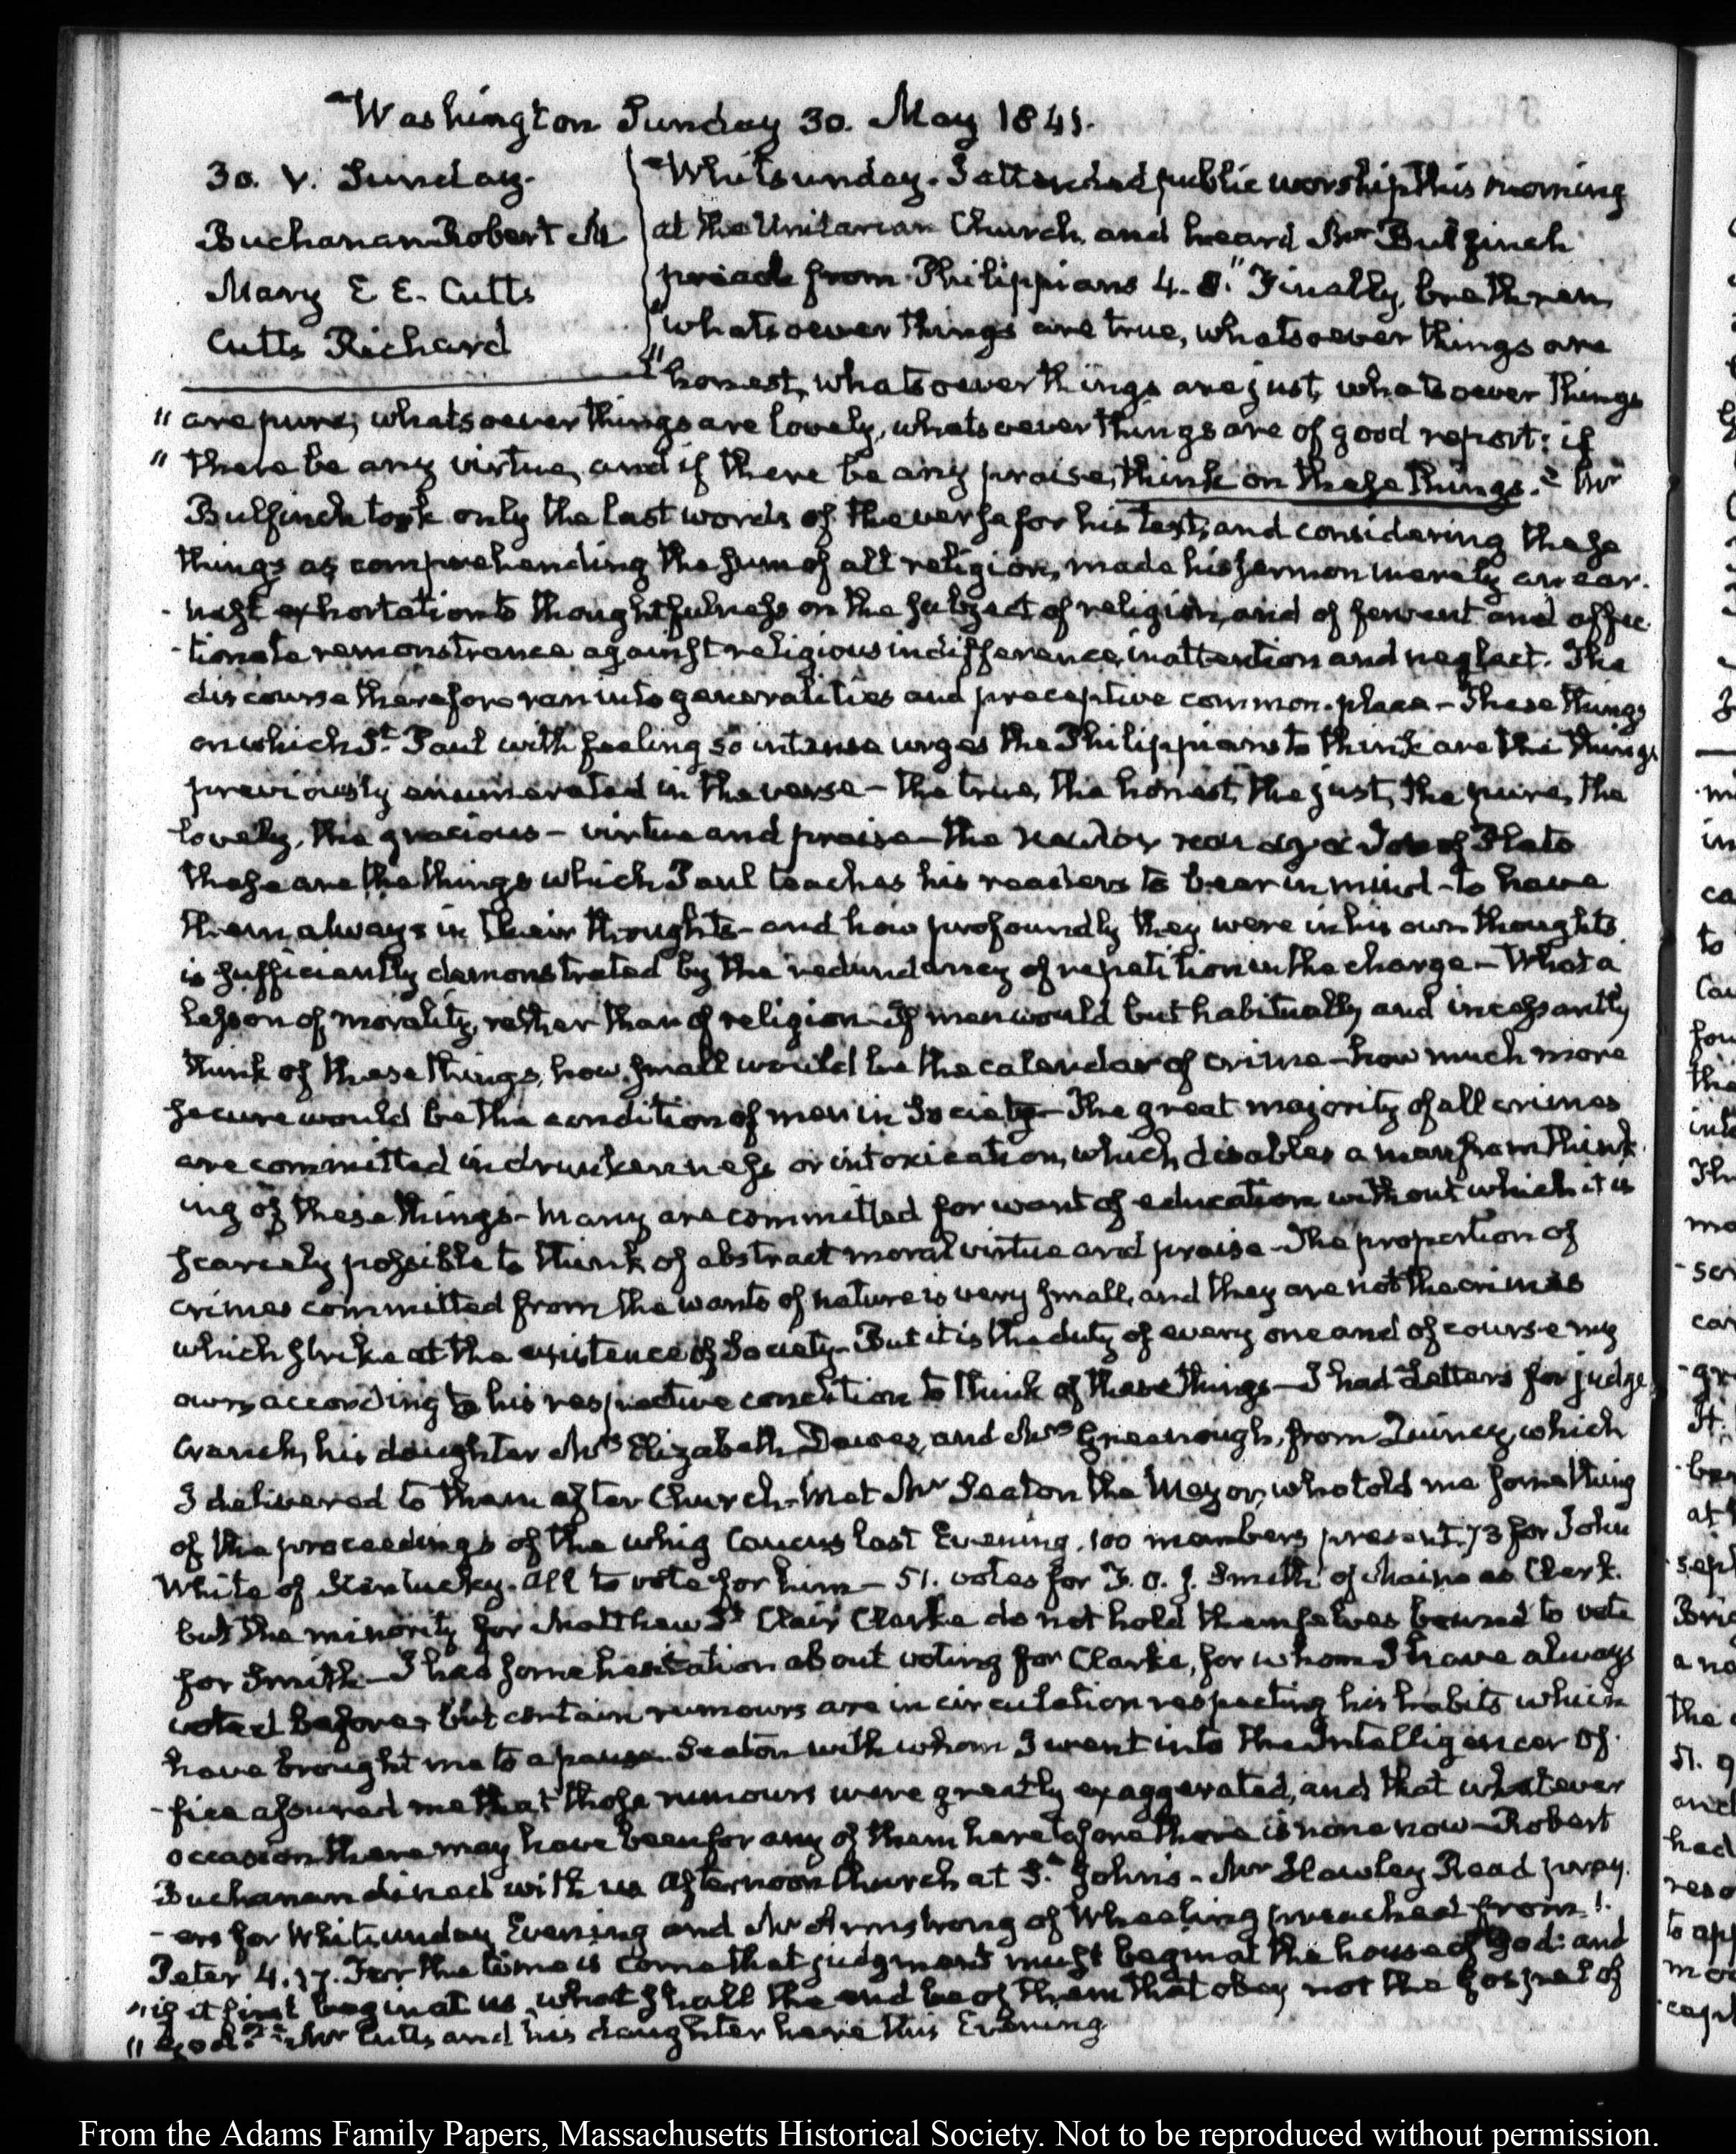 Washington Sunday 30. May 1841.
30. V. Sunday.
Buchanan Robert M
Mary E E. Cutts
Cutts Richard
Whitsunday. I attended public worship this morning
at the Unitarian Church, and heard Mr Bulfinch
preach from Philippians 4. 8. "Finally, brethren,
"whatsoever things are true, whatsoever things are
"honest, whatsoever things are just, whatsoever things
" are pure, whatsoever things are lovely, whatsoever things are of good report: if
" there be any virtue, and if there be any praise, think on these things." Mr
Bulfinch took only the last words of the verse for his text, and considering these
things as comprehending the sum of all religion, made his sermon merely an ear-
-nest exhortation to thoughtfulness on the subject of religion, and of fervent and affec-
-tionate remonstrance against religious indifference, inattention and neglect. The
discourse therefore ran into generalities and preceptive common-place - These things
on which St. Paul with feeling so intense urges the Philippians to think are the things
previously enumerated in the verse - the true, the honest, the just, the pure, the
lovely, the gracious - virtue and praise - the of Plato
these are the things which Paul teaches his readers to bear in mind - to have
them always in their thoughts - and how profoundly they were in his own thoughts
is sufficiently demonstrated by the redundancy of repetition in the charge - What a
lesson of morality, rather than of religion - If men would but habitually and incessantly
think of these things, how small would be the calendar of crime - how much more
secure would be the condition of man in Society - The great majority of all crimes
are committed in drunkenness or intoxication, which disables a man from think-
ing of these things - many are committed for want of education without which it is
scarcely possible to think of abstract moral virtue and praise - The proportion of
crimes committed from the wants of nature is very small, and they are not the crimes
which strike at the existence of Society - But it is the duty of every one and of course my
own, according to his respective condition to think of these things - I had Letters for judge
Cranch, his daughter Mrs Elizabeth Dawes, and Mrs Greenough, from Quincy, which
I delivered to them after Church - Met Mr Seaton the Mayor, who told me something
of the proceedings of the whig Caucus last Evening. 100 members present. 73 for John
White of Kentucky. All to vote for him - 51. votes for F. O. J. Smith of Maine as Clerk.
but the minority for Matthew St Clair Clarke do not hold themselves bound to vote
for Smith - I had some hesitation about voting for Clarke, for whom I have always
voted before, but certain rumours are in circulation respecting his habits which
have brought me to a pause. Seaton with whom I went into the Intelligencer Of-
-fice assured me that those rumours were greatly exaggerated, and that whatever
occasion there may have been for any of them heretofore there is none now - Robert
Buchanan dined with us Afternoon Church at St. John's - Mr Hawley Read pray-
-ers for Whitsunday Evening and Mr Armstrong of Wheeling preached from 1.
Peter 4. 17. For the time is come that judgment must begin at the house of God: and
"if it first begin at us, what shall the end be of them that obey not the Gospel of
" God?" Mr Cutts and his daughter here this Evening
From the Adams Family Papers, Massachusetts Historical Society. Not to be reproduced without permission.